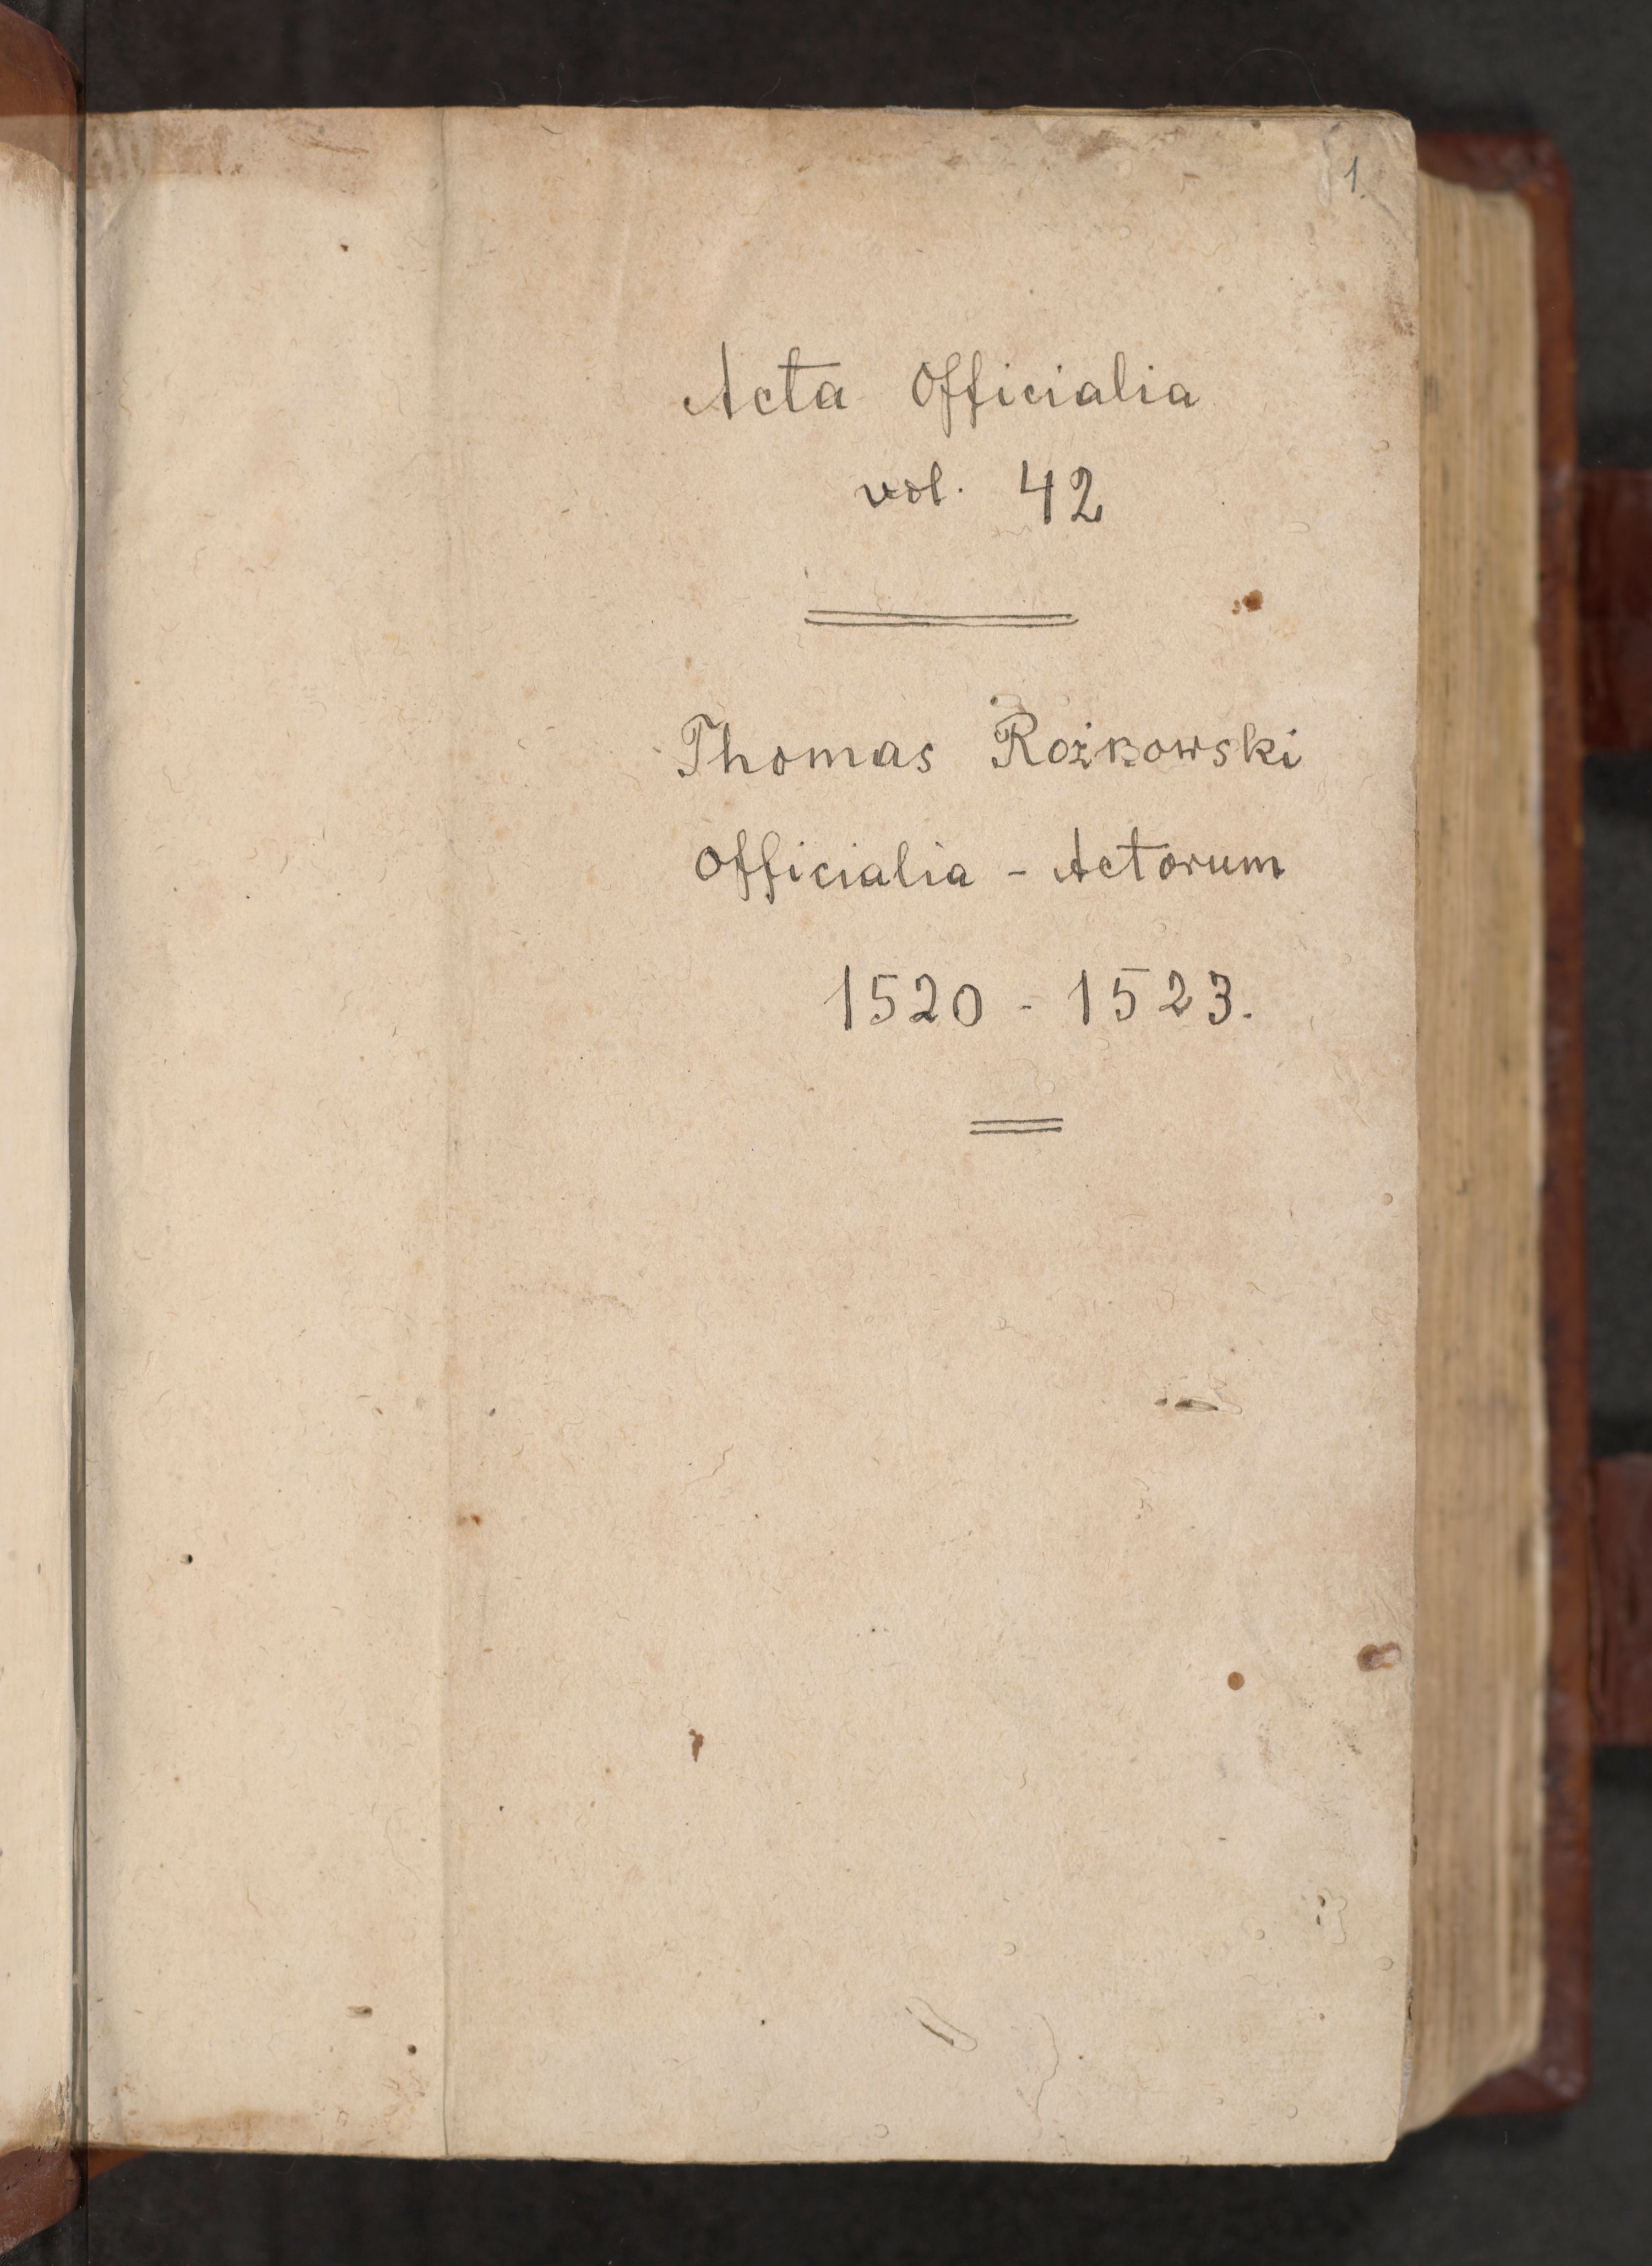 1
Acta Officialia
vol. 42
Thomas Rożkowski
Officialia - Actorum
1520 - 1523.